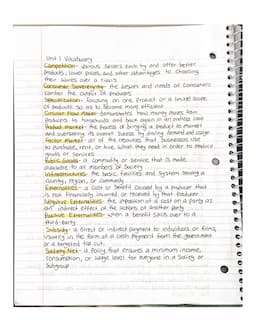 Unit 1 Vocabulary
Competition- various sellers each try and offer better
products, lower prices, and other advantages to choosing
their wares over a rivals
Consumer Sovereignty- the desires and needs of consumers
control the output of producers
Specialization- focusing on one product or a limited scope
of products so as to become more efficient
Circular Flow Model- demonstrates how money moves from
producers to households and back again in an endless loop
Product Market- the process of bringing a product to market
and overseeing its overall success by driving demand and usage
Factor Market- all of the resources that businesses use
to purchase, rent, or hire, what they need in order to produce
goods or services
Public Goods- a commodity or service that is made
available to all members of society
Infrastructures- the basic facilities and system serving a
country, region, or community
Externalities- a cost or benefit caused by a producer that
is not financially incurred or received by that producer
Negative Externalities- the imposition of a cost on a party as
an indirect effect of the actions of another party
Positive Externalities- when a benefit spills over to a
third-party
Subsidy- a direct or indirect payment to individuals or firms,
usually in the form of a cash payment from the government
or a targeted tax cut.
Safety Net- a policy that ensures a minimum income,
consumption, or wage level for everyone in a society or
subgroup